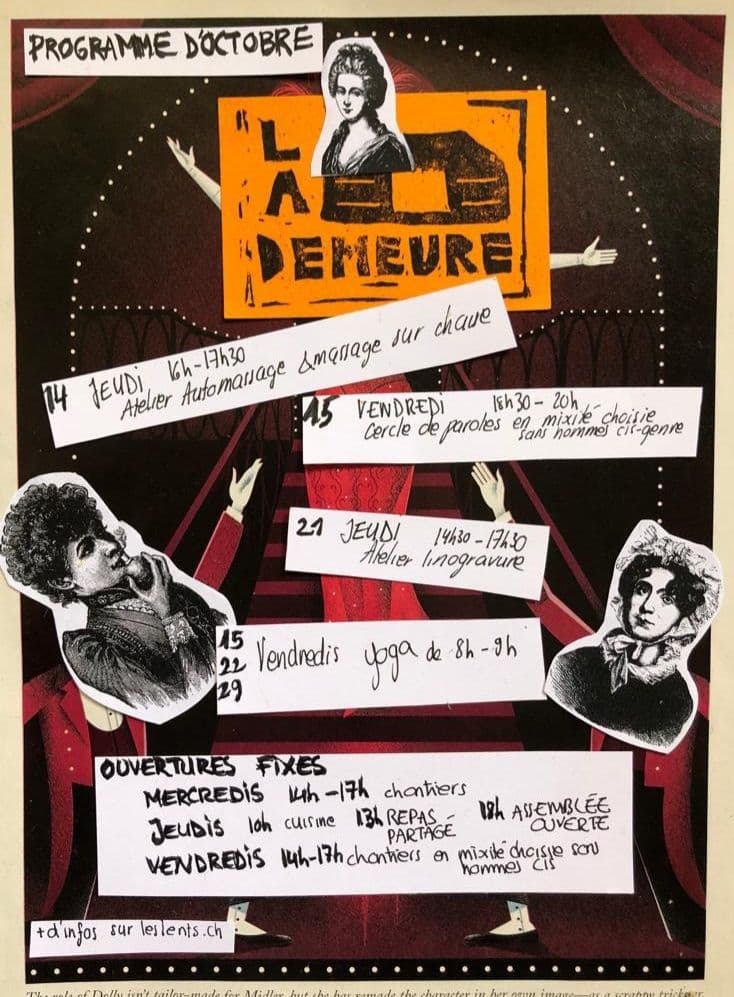 PROGRAMME D'OCTOBRE
LA
DEMEURE
14 JEUDI 16h-17h30
Atelier Automassage & massage sur chaise
15 VENDREDI 18h30 - 20h
Cercle de paroles en mixité choisie
sans hommes cis-genre
21 JEUDI 14h30 - 17h30
Atelier linogravure
15
22 Vendredis yoga de 8h - 9h
29
OUVERTURES FIXES
MERCREDIS 14h - 17h chantiers
JEUDIS 10h cuisine 13h REPAS PARTAGÉ 18h ASSEMBLÉE OUVERTE
VENDREDIS 14h-17h chantiers en mixité choisie sans hommes cis
+ d'infos sur leslents.ch
The role of Dolly isn't tailor-made for Midler, but she has remade the character in her own image—as a scrappy trickster